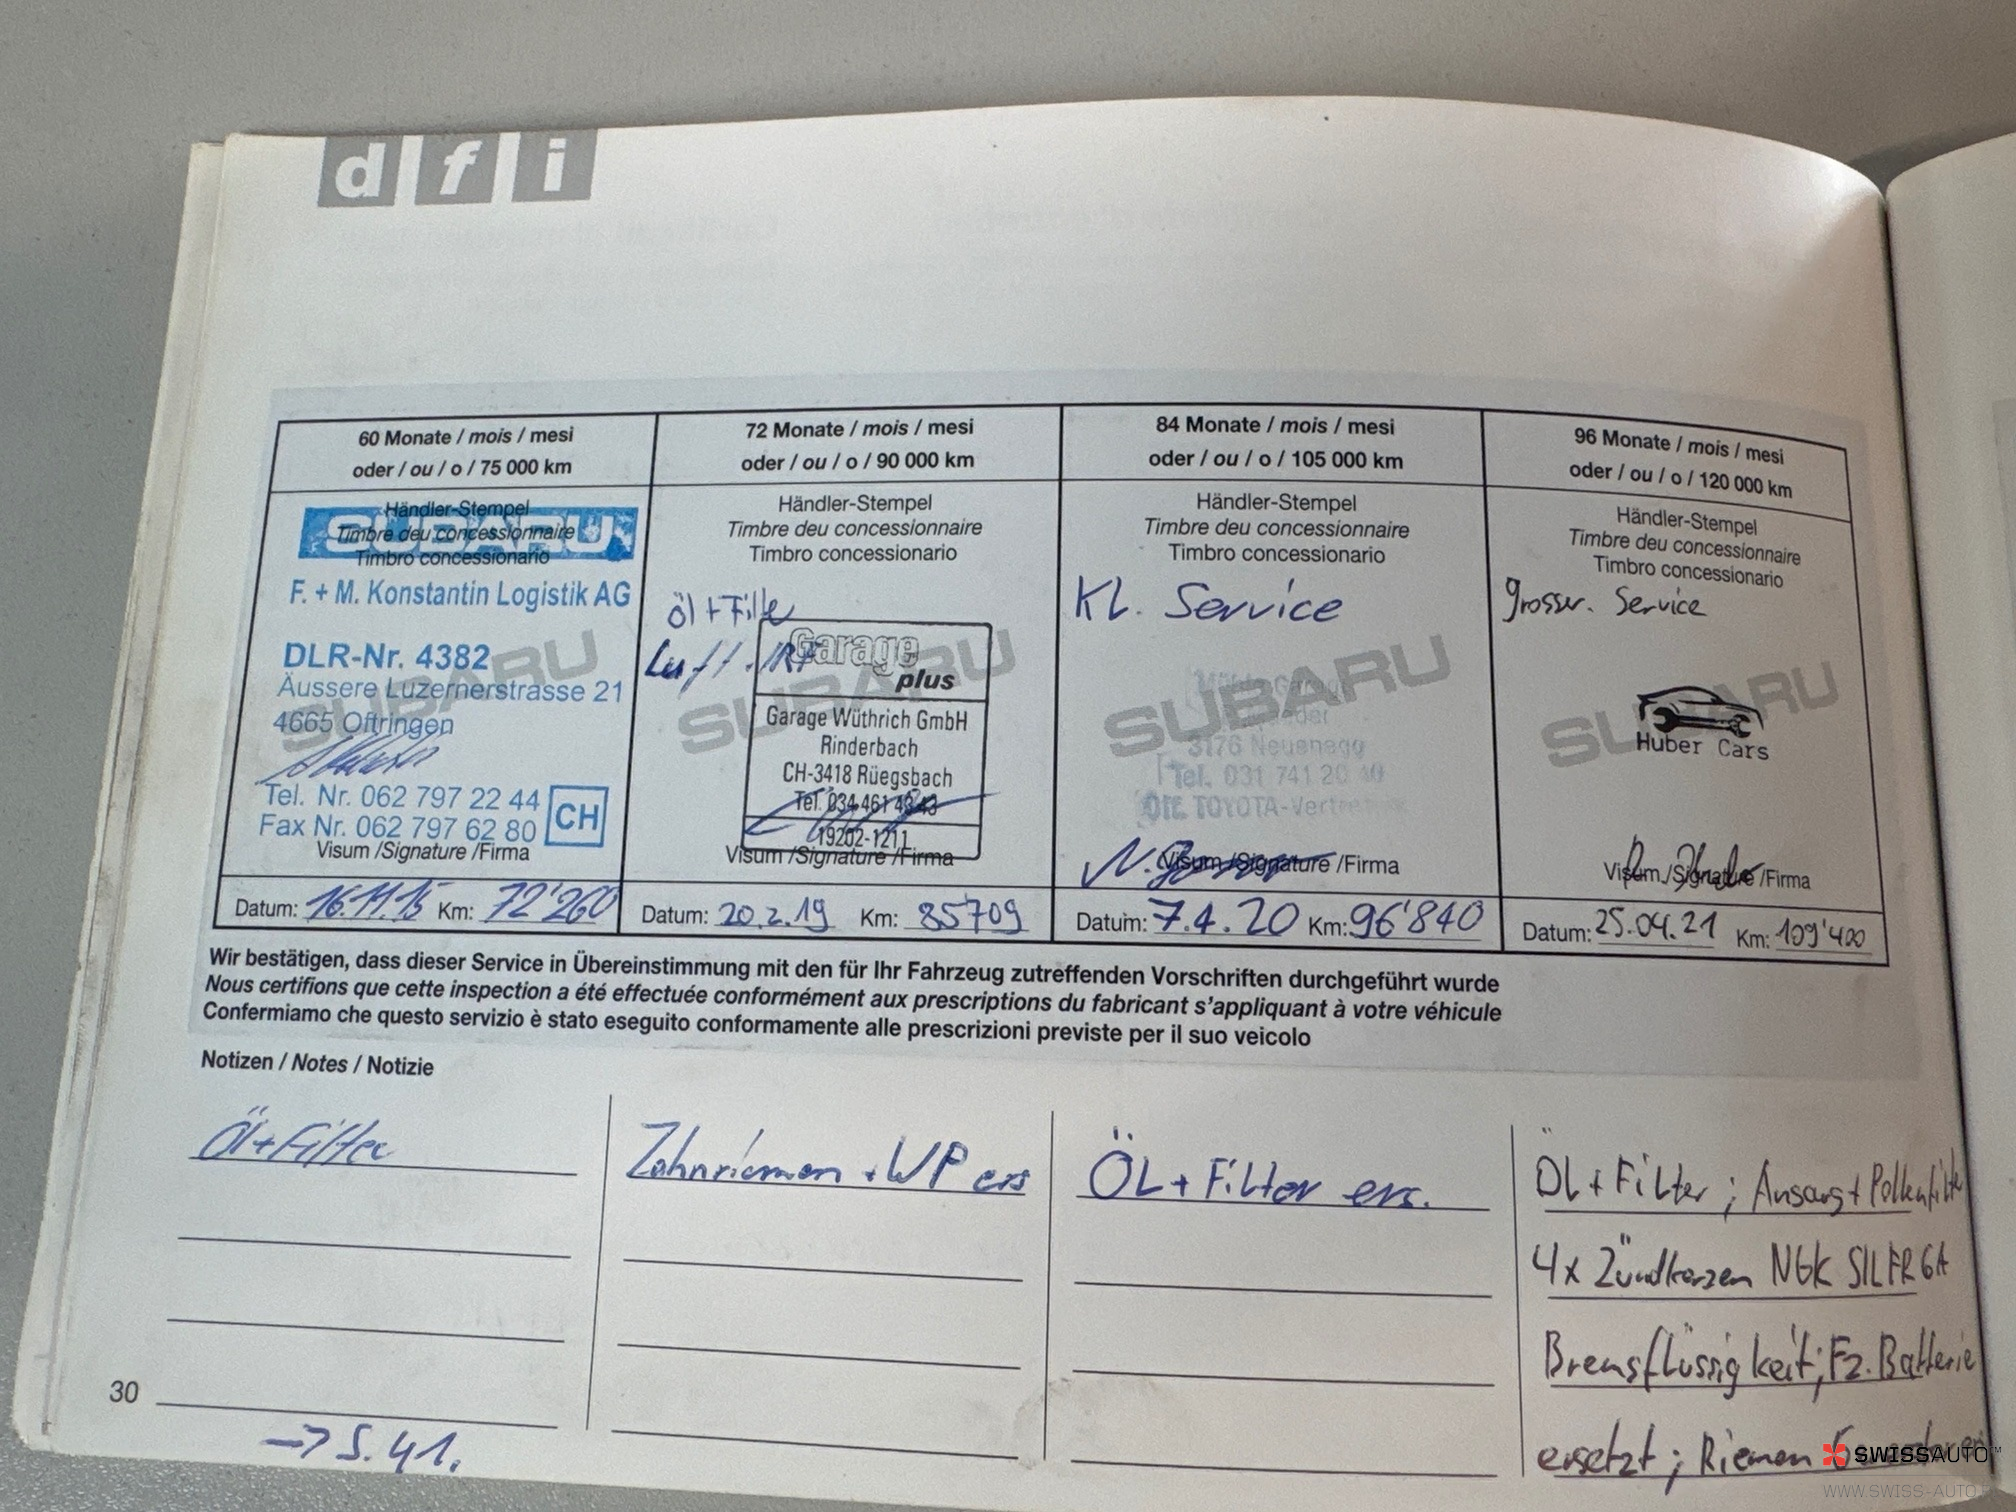 d f i
60 Monate / mois / mesi
oder / ou / o / 75 000 km
Händler-Stempel
Timbre deu concessionnaire
Timbro concessionario
SUBARU
F. + M. Konstantin Logistik AG
DLR-Nr. 4382
Äussere Luzernerstrasse 21
4665 Oftringen
SUBARU
Tel. Nr. 062 797 22 44
Fax Nr. 062 797 62 80
CH
Visum /Signature /Firma
Datum: 16.11.15 Km: 72'260
72 Monate / mois / mesi
oder / ou / o / 90 000 km
Händler-Stempel
Timbre deu concessionnaire
Timbro concessionario
Öl + Filte
Luft
SUBARU
Garage
plus
Garage Wüthrich GmbH
Rinderbach
CH-3418 Rüegsbach
Tel. 034 461 43 43
19202-1211
Visum /Signature /Firma
Datum: 20.2.19 Km: 85709
84 Monate / mois / mesi
oder / ou / o / 105 000 km
Händler-Stempel
Timbre deu concessionnaire
Timbro concessionario
Kl. Service
SUBARU
3176 Neuenegg
Tel. 031 741 20 40
TOYOTA
Visum /Signature /Firma
Datum: 7.4.20 Km: 96'840
96 Monate / mois / mesi
oder / ou / o / 120 000 km
Händler-Stempel
Timbre deu concessionnaire
Timbro concessionario
grosser. Service
SUBARU
Huber Cars
Visum /Signature /Firma
Datum: 25.04.21 Km: 109'400
Wir bestätigen, dass dieser Service in Übereinstimmung mit den für Ihr Fahrzeug zutreffenden Vorschriften durchgeführt wurde
Nous certifions que cette inspection a été effectuée conformément aux prescriptions du fabricant s'appliquant à votre véhicule
Confermiamo che questo servizio è stato eseguito conformamente alle prescrizioni previste per il suo veicolo
Notizen / Notes / Notizie
Öl+Filter
Zahnriemen + WP ers
ÖL + Filter ers.
ÖL + Filter ; Ansaug + Pollenfilter
4x Zündkerzen NGK SILFR6A
Bremsflüssigkeit; Fz. Batterie
ersetzt ; Riemen
30
→ S. 41.
SWISSAUTO™
WWW.SWISS-AUTO